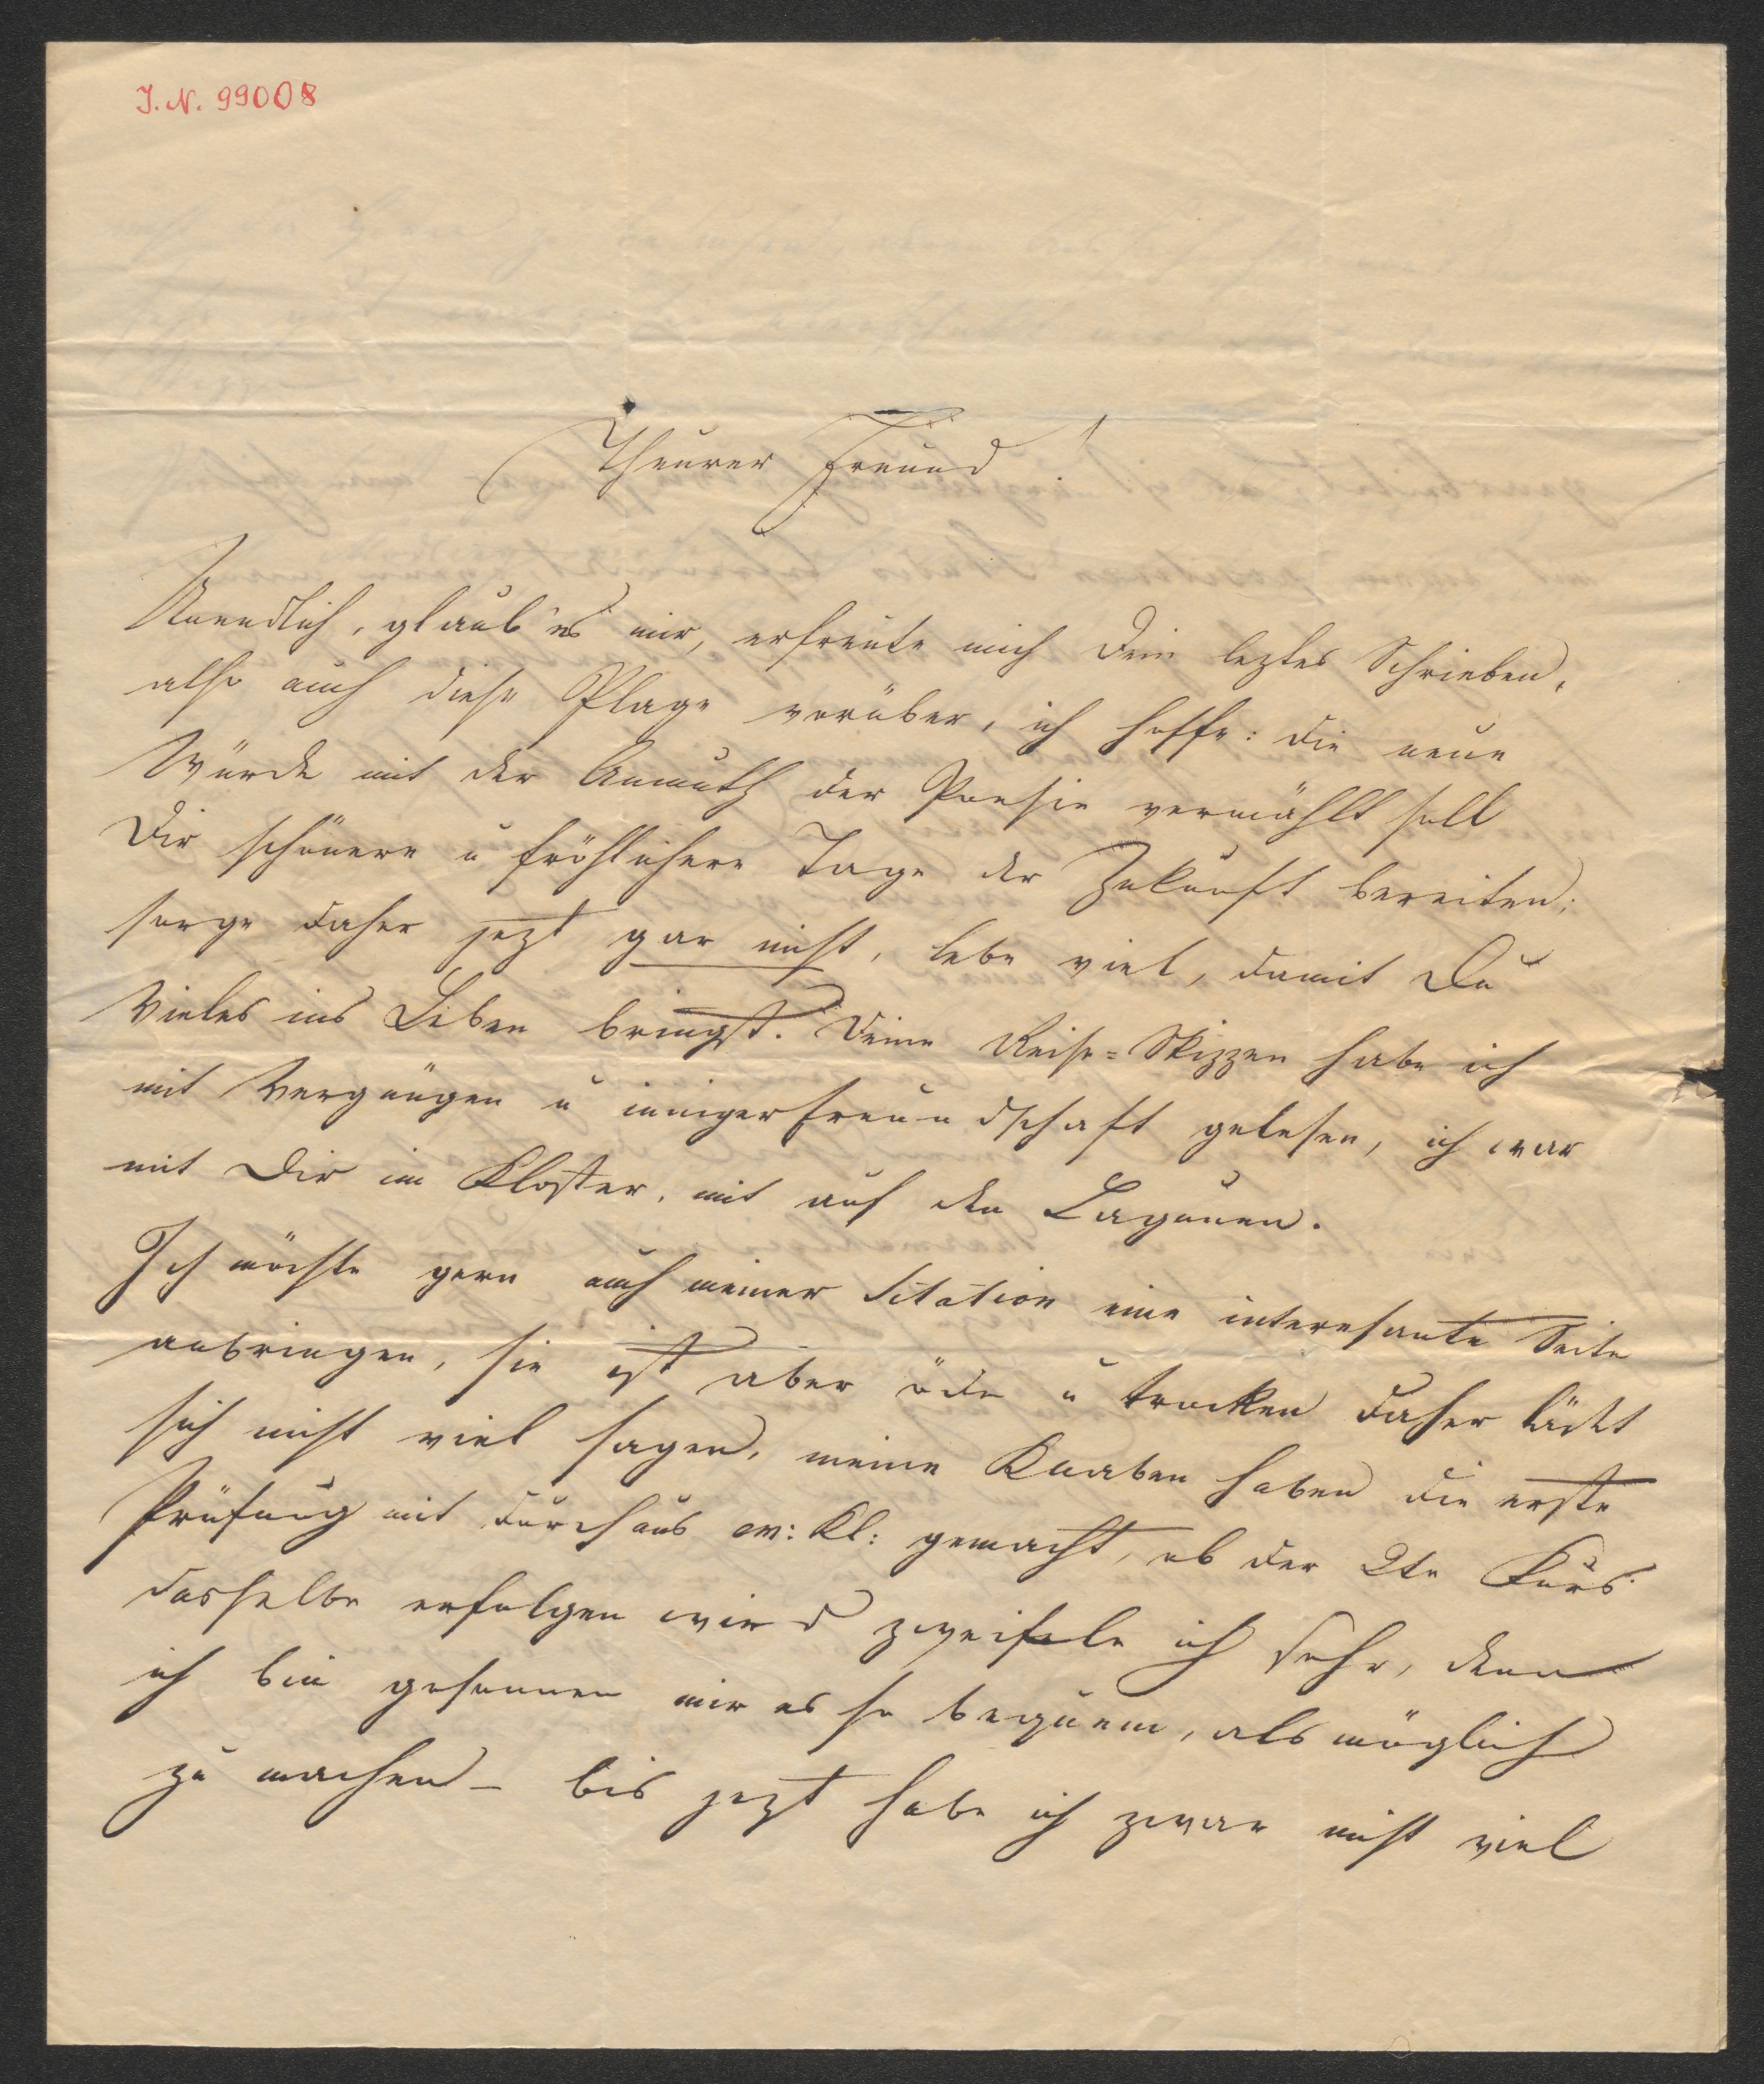 J. N. 99008
Theurer Freund!
Unendlich, glaub es mir, erfreute mich Dein leztes Schrieben,
also auch diese Plage vorüber, ich hoffe: die neue
Würde mit der Anmuth der Poesie vermählt soll
Dir schönere u fröhlichere Tage der Zukunft bereiten;
sorge daher jezt gar nicht, lebe viel, damit Du
Vieles ins Leben bringst. Deine Reise=Skizzen habe ich
mit Vergnügen u inniger Freundschaft gelesen, ich war
mit Dir im Kloster, mit auf den Lagunen.
Ich möchte gern auch meiner Sitation eine interesante Seite
anbringen, sie ist aber öde u trocken daher läßt
sich nicht viel sagen, meine Knaben haben die erste
Prüfung mit durchaus em: Kl: gemacht, ob der 2te Kurs
dasselbe erfolgen wird zweifele ich sehr, denn
ich bin gesonnen mir es so bequem, als möglich
zu machen – bis jezt habe ich zwar nicht viel